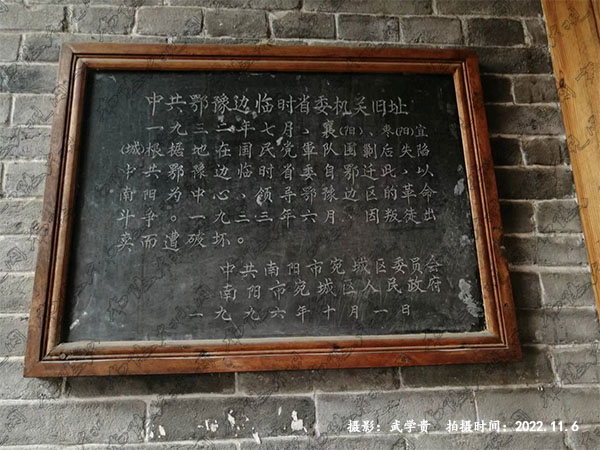 中共鄂豫边临时省委机关旧址
一九三二年七月、襄(阳)、枣(阳)宜
(城)根据地在国民党軍队围剿后失陷
中共鄂豫边临时省委自鄂迁此,以
南阳为中心、领导鄂豫边区的革命
斗争。一九三三年六月、因叛徒出
卖而遭破坏。
中共南阳市宛城区委员会
南阳市宛城区人民政府
一九九六年十月一日
摄影：武学贵 拍摄时间：2022.11.6